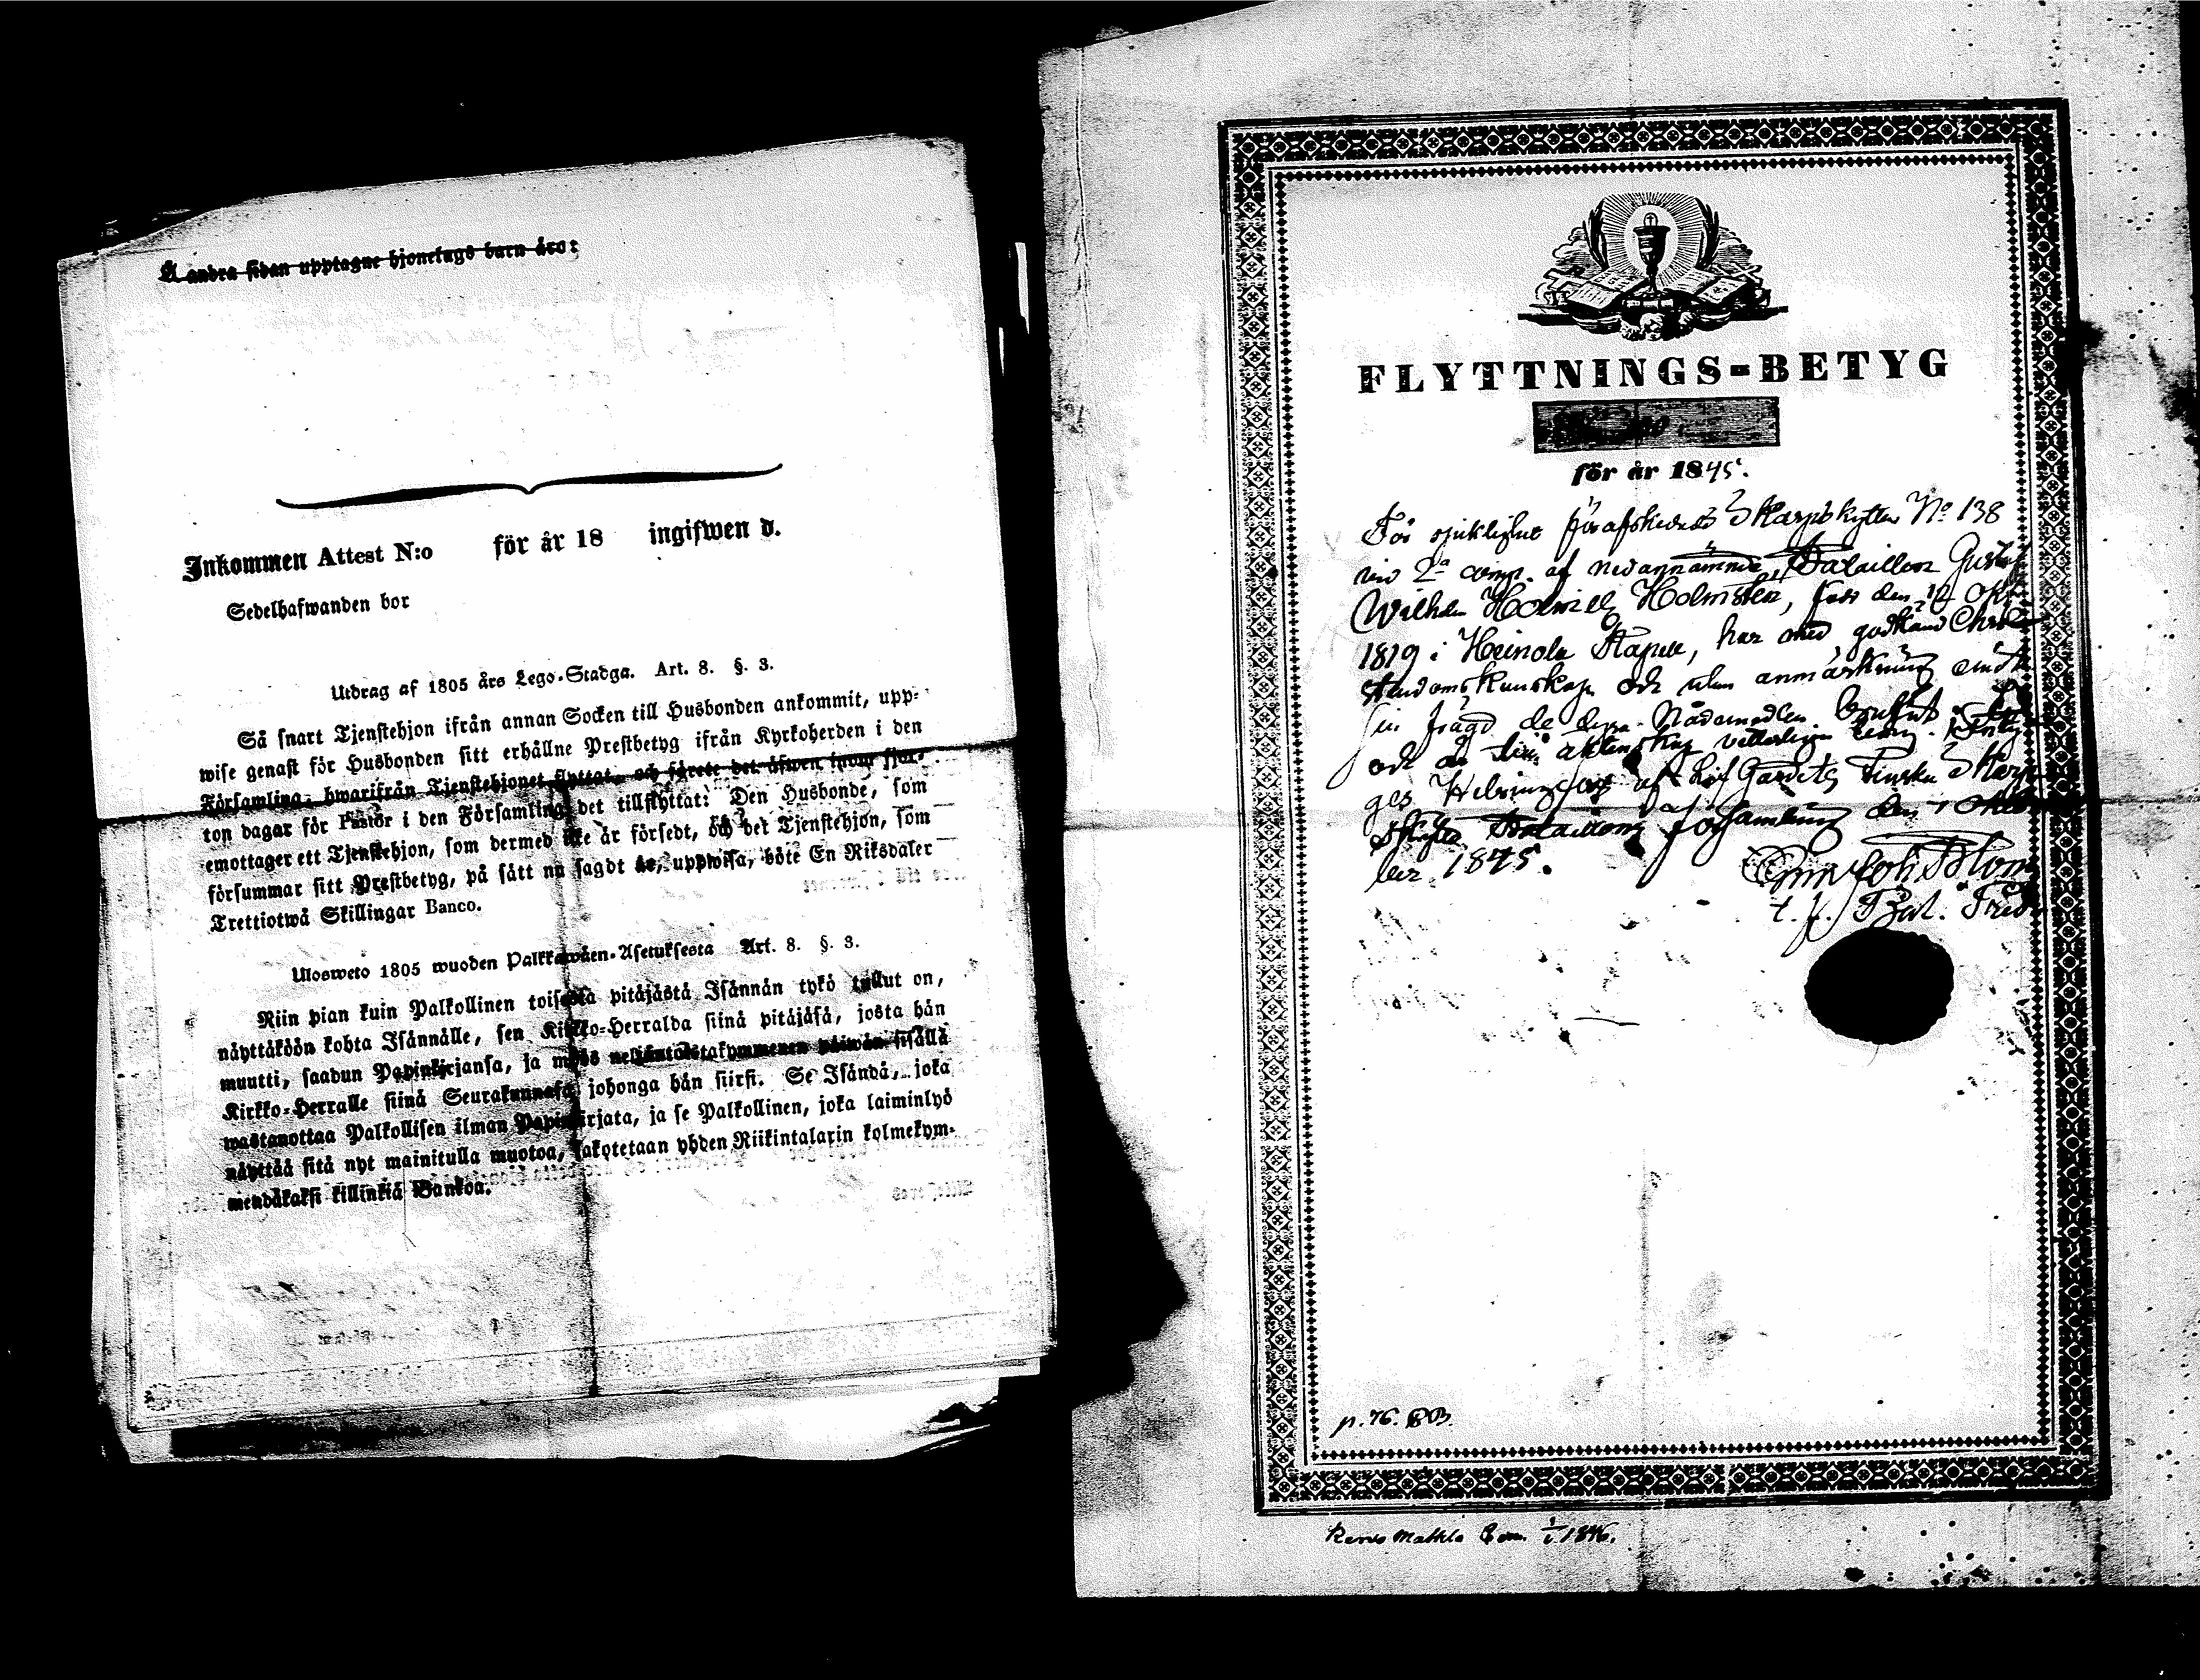 Å andra sidan upptagne hjonelags barn äro:
Inkommen Attest N:o för år 18 ingifwen d.
Sedelhafwanden bor
Utdrag af 1805 års Lego-Stadga. Art. 8. §. 3.
Så snart Tjenstehjon ifrån annan Socken till Husbonden ankommit, upp-
wise genast för Husbonden sitt erhållne Prestbetyg ifrån Kyrkoherden i den
Församling, hwarifrån Tjenstehjonet flyttat, och förete det äfwen inom fjor-
ton dagar för Pastor i den Församling det tillflyttat: Den Husbonde, som
emottager ett Tjenstehjon, som dermed icke är försedt, och det Tjenstehjon, som
försummar sitt Prestbetyg, på sätt nu sagdt är, uppwisa, böte En Riksdaler
Trettiotwå Skillingar Banco.
Ulosweto 1805 wuoden Palkkawäen-Asetuksesta Art. 8. §. 3.
Niin pian kuin Palkollinen toisesta pitäjästä Isännän tykö tullut on,
näyttäköön kohta Isännälle, sen Kirkko-Herralda siinä pitäjäsä, josta hän
muutti, saadun Papinkirjansa, ja myös neljäntoistakymmenen päiwän sisällä
Kirkko-Herralle siinä Seurakunnasa, johonga hän siirsi. Se Isändä, joka
wastanottaa Palkollisen ilman Papinkirjata, ja se Palkollinen, joka laiminlyö
näyttää sitä nyt mainitulla muotoa, sakotetaan yhden Riikintalarin kolmekym-
mendäkaksi killinkiä Bankoa.
FLYTTNINGS-BETYG
för år 1845.
För sjuklighet förafskedade Skarpskytten No 138
vid 2a comp. af nedannämnde Bataillon Gustaf
Wilhelm Holmsten, född den 12 Okt
1819 i Heinola Kapell, har med godkänd Chri-
stendomskunskap och utan anmärkning
sin frägd de dyra Nådemedlen
och är till äktenskap
ges. Helsingfors af Lif Gardets Finska Skarp-
skytte Bataillons församling den 1 Okto-
ber 1845.
t. f. Bat. Pred.
p. 76.
1846.